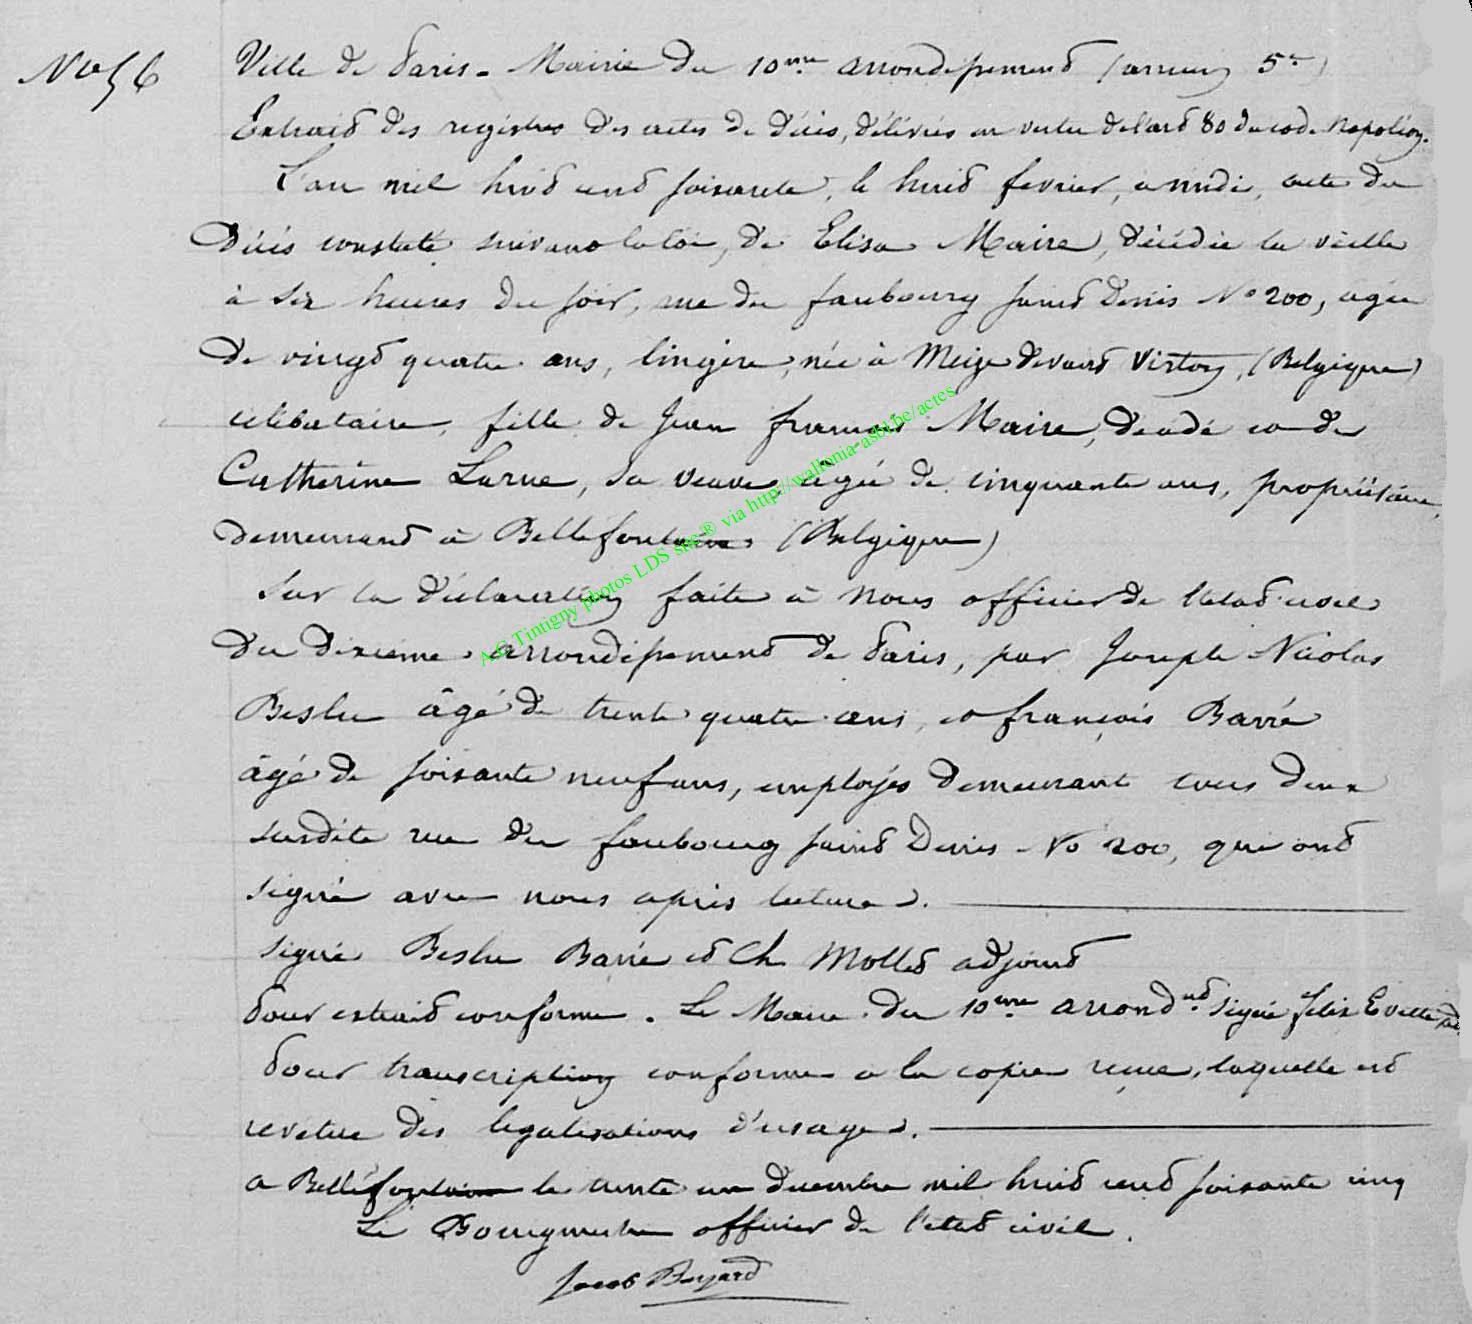 No 56
Ville de Paris - Mairie du 10me arrondissement (ancien 5e)
Extrait des registres des actes de décès, délivrés en vertu de l'art 80 du code Napoléon.
L'an mil huit cent soixante, le huit fevrier, à midi, acte du
décès constaté suivant la loi, de Elisa Maire, décédée la veille
à six heures du soir, rue du faubourg Saint Denis No 200, agée
de vingt quatre ans, lingère, née à Meix devant Virton, (Belgique)
célibataire, fille de Jean françois Maire, décédé et de
Catherine Larue, sa veuve, agée de cinquante ans, propriétaire,
demeurant à Bellefontaine (Belgique)
Sur la déclaration faite à nous officier de l'état civil
du dixième arrondissement de Paris, par Joseph Nicolas
Beslu âgé de trente quatre ans, et françois Barré
âgé de soixante neuf ans, employés demeurant tous deux
susdite rue du faubourg saint Denis No 200, qui ont
signé avec nous après lecture.
signé Beslu Barré et Ch Mollet adjoint
Pour extrait conforme. Le Maire du 10me arrondnt signé félix Evette
Pour transcription conforme à la copie reçue, laquelle est
revetue des légalisations d'usage.
a Bellefontaine le trente un decembre mil huit cent soixante cinq
Le Bourgmestre officier de l'état civil.
Jacob Bayard
A.G Tintigny photos LDS site® via http://wallonia-asbl.be/actes